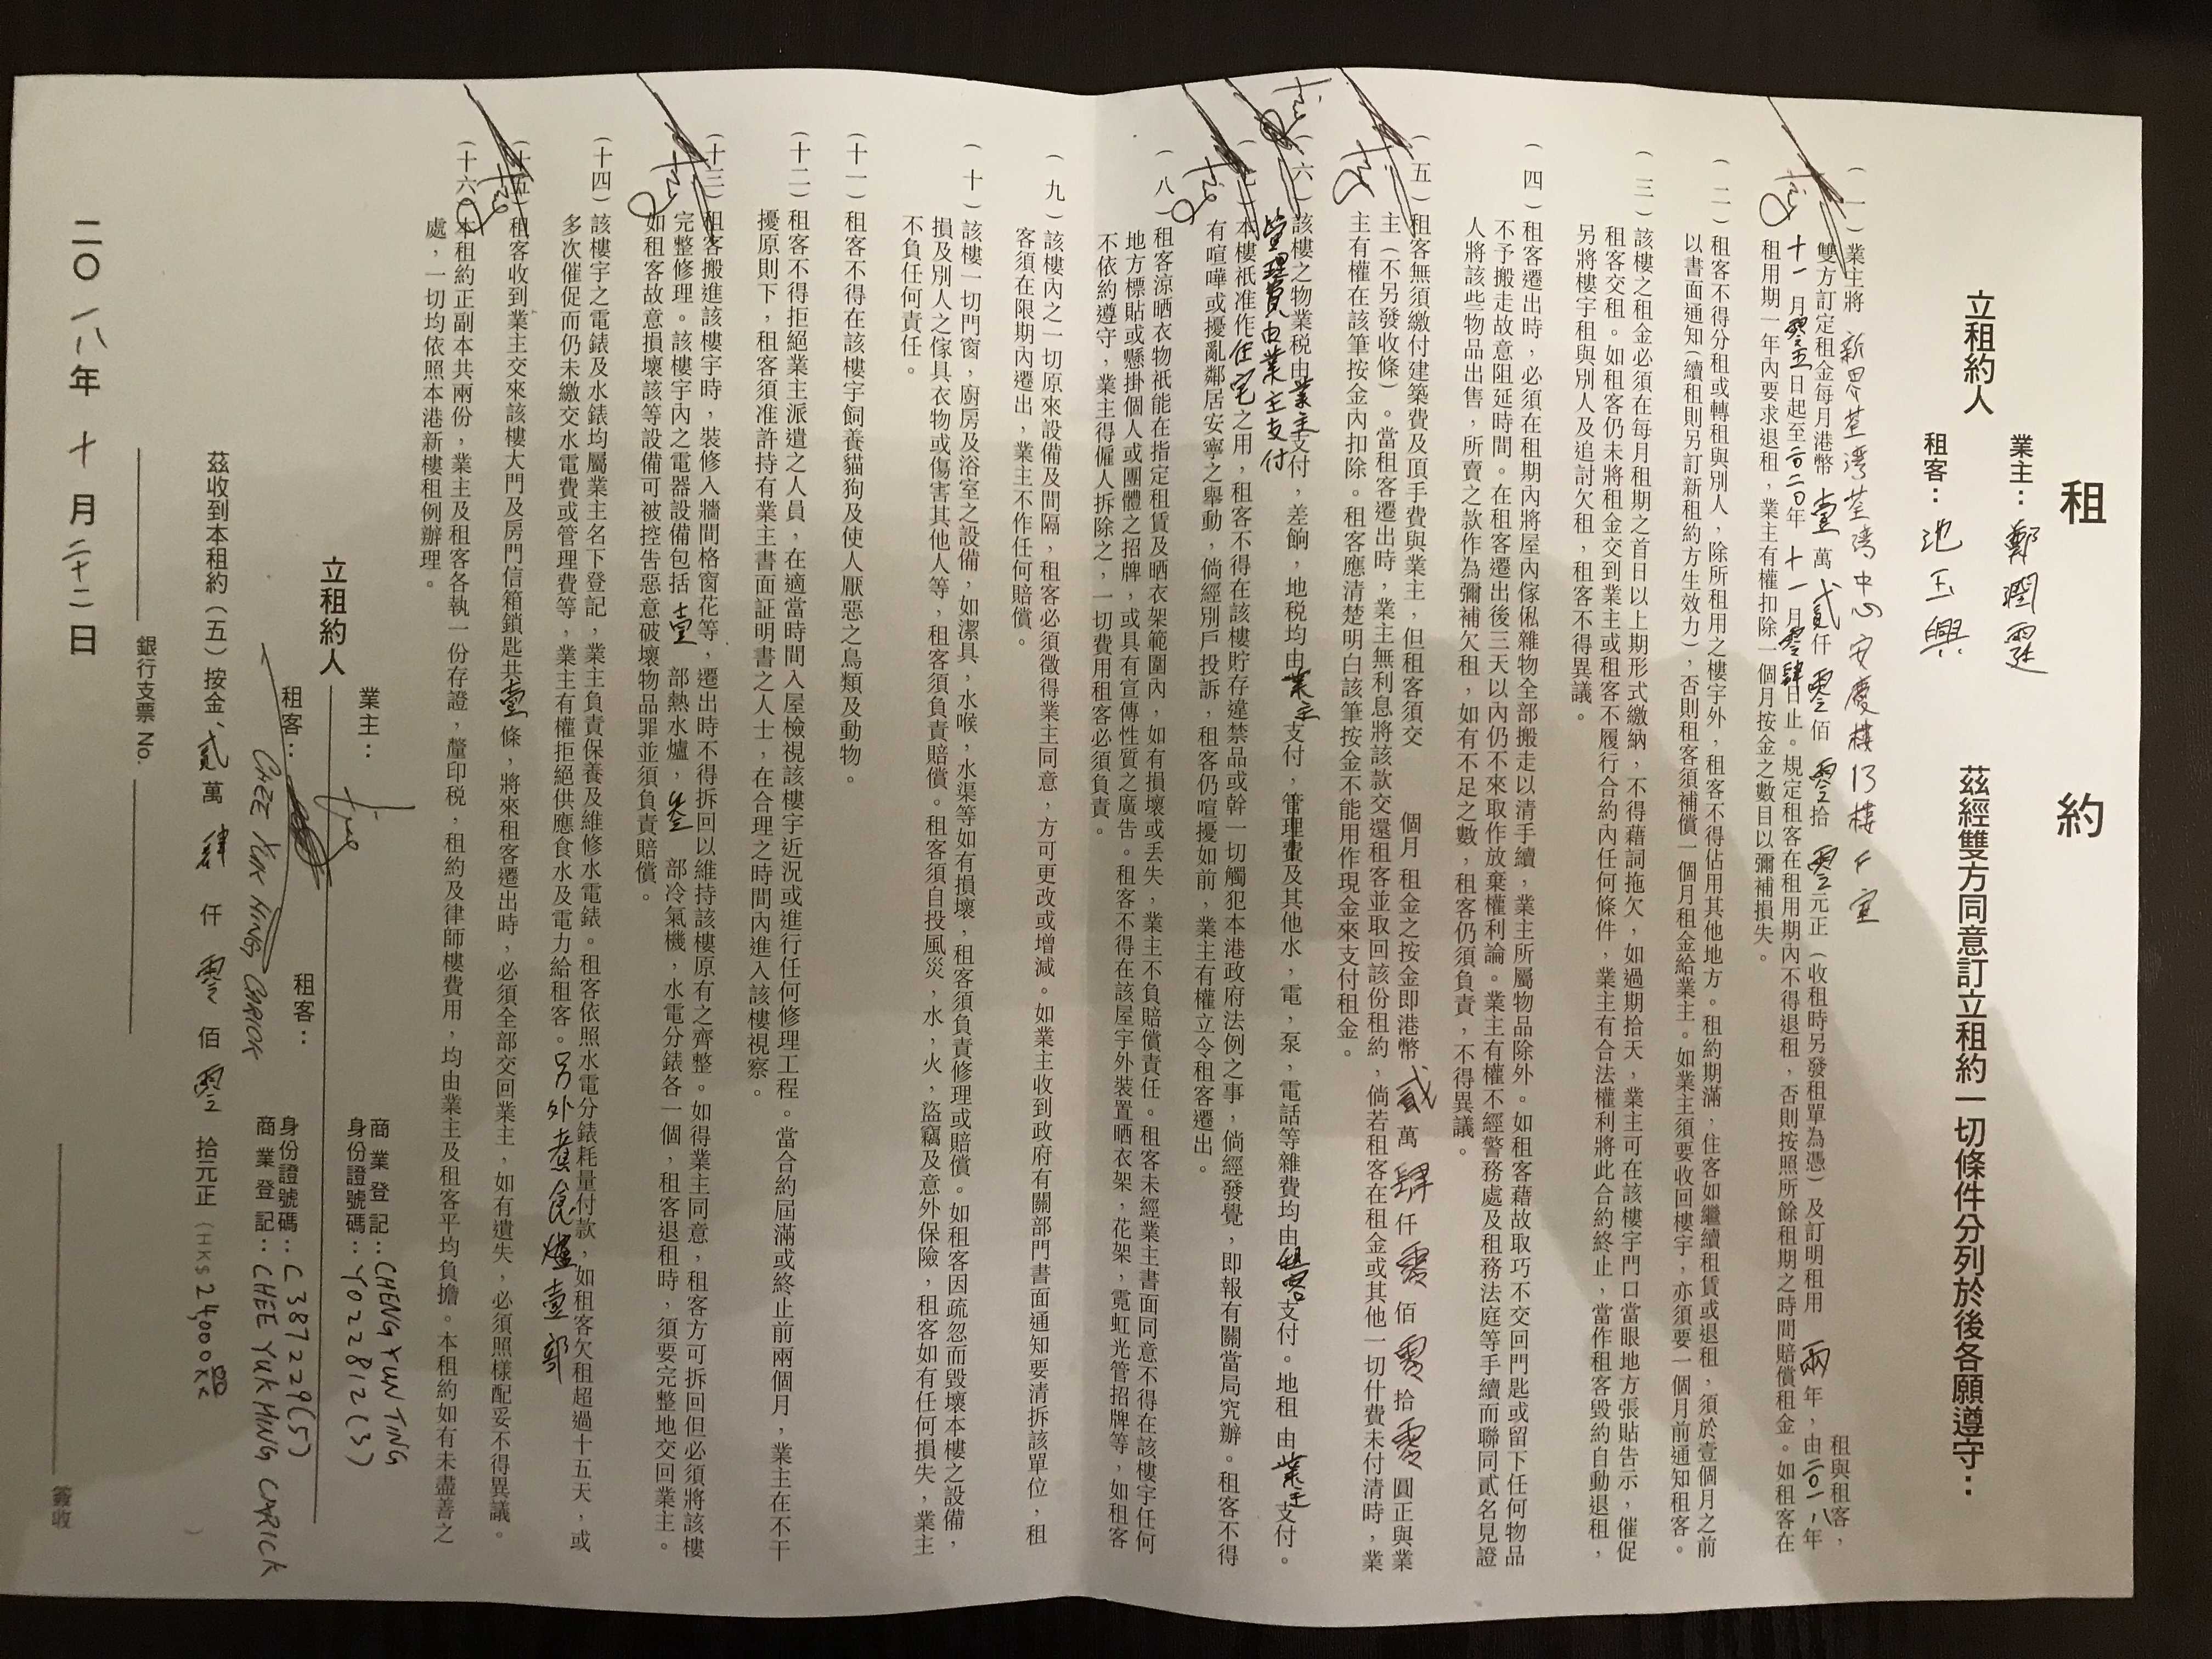 租約
業主：鄭潤霆
立租約人 茲經雙方同意訂立租約一切條件分列於後各願遵守：
租客：池玉興
（一）業主將 新界荃灣荃灣中心安慶樓13樓 室 租與租客，
雙方訂定租金每月港幣壹萬貳仟零佰零拾零元正（收租時另發租單為憑）及訂明租用兩年，由二〇一八年
十一月零五日起至二〇二〇年十一月零肆日止。規定租客在租用期內不得退租，否則按照所餘租期之時間賠償租金。如租客在
租用期一年內要求退租，業主有權扣除一個月按金之數目以彌補損失。
（二）租客不得分租或轉租與別人，除所租用之樓宇外，租客不得佔用其他地方。租約期滿，住客如繼續租賃或退租，須於壹個月之前
以書面通知（續租則另訂新租約方生效力），否則租客須補償一個月租金給業主。如業主須要收回樓宇，亦須要一個月前通知租客。
（三）該樓之租金必須在每月租期之首日以上期形式繳納，不得藉詞拖欠，如過期拾天，業主可在該樓宇門口當眼地方張貼告示，催促
租客交租。如租客仍未將租金交到業主或租客不履行合約內任何條件，業主有合法權利將此合約終止，當作租客毀約自動退租，
另將樓宇租與別人及追討欠租，租客不得異議。
（四）租客遷出時，必須在租期內將屋內傢俬雜物全部搬走以清手續，業主所屬物品除外。如租客藉故取巧不交回門匙或留下任何物品
不予搬走故意阻延時間。在租客遷出後三天以內仍不來取作放棄權利論。業主有權不經警務處及租務法庭等手續而聯同貳名見證
人將該些物品出售，所賣之款作為彌補欠租，如有不足之數，租客仍須負責，不得異議。
（五）租客無須繳付建築費及頂手費與業主，但租客須交 個月租金之按金即港幣貳萬肆仟零佰零拾零圓正與業
主（不另發收條）。當租客遷出時，業主無利息將該款交還租客並取回該份租約，倘若租客在租金或其他一切什費未付清時，業
主有權在該筆按金內扣除。租客應清楚明白該筆按金不能用作現金來支付租金。
（六）該樓之物業税由業主支付，差餉，地税均由業主支付，管理費及其他水，電，泵，電話等雜費均由租客支付。地租由業主支付。
管理費由業主支付
（七）本樓祇准作住宅之用，租客不得在該樓貯存違禁品或幹一切觸犯本港政府法例之事，倘經發覺，即報有關當局究辦。租客不得
有喧嘩或擾亂鄰居安寧之舉動，倘經別戶投訴，租客仍喧擾如前，業主有權立令租客遷出。
（八）租客涼晒衣物祇能在指定租賃及晒衣架範圍內，如有損壞或丟失，業主不負賠償責任。租客未經業主書面同意不得在該樓宇任何
地方標貼或懸掛個人或團體之招牌，或具有宣傳性質之廣告。租客不得在該屋宇外裝置晒衣架，花架，霓虹光管招牌等，如租客
不依約遵守，業主得僱人拆除之，一切費用租客必須負責。
（九）該樓內之一切原來設備及間隔，租客必須徵得業主同意，方可更改或增減。如業主收到政府有關部門書面通知要清拆該單位，租
客須在限期內遷出，業主不作任何賠償。
（十）該樓一切門窗，廚房及浴室之設備，如潔具，水喉，水渠等如有損壞，租客須負責修理或賠償。如租客因疏忽而毀壞本樓之設備，
損及別人之傢具衣物或傷害其他人等，租客須負責賠償。租客須自投風災，水，火，盜竊及意外保險，租客如有任何損失，業主
不負任何責任。
（十一）租客不得在該樓宇飼養貓狗及使人厭惡之鳥類及動物。
（十二）租客不得拒絕業主派遣之人員，在適當時間入屋檢視該樓宇近況或進行任何修理工程。當合約屆滿或終止前兩個月，業主在不干
擾原則下，租客須准許持有業主書面証明書之人士，在合理之時間內進入該樓視察。
（十三）租客搬進該樓宇時，裝修入牆間格窗花等，遷出時不得拆回以維持該樓原有之齊整。如得業主同意，租客方可拆回但必須將該樓
完整修理。該樓宇內之電器設備包括壹部熱水爐，叁部冷氣機，水電分錶各一個，租客退租時，須要完整地交回業主。
如租客故意損壞該等設備可被控告惡意破壞物品罪並須負責賠償。
（十四）該樓宇之電錶及水錶均屬業主名下登記，業主負責保養及維修水電錶。租客依照水電分錶耗量付款，如租客欠租超過十五天，或
多次催促而仍未繳交水電費或管理費等，業主有權拒絕供應食水及電力給租客。另外煮食爐壹部
（十五）租客收到業主交來該樓大門及房門信箱鎖匙共壹條，將來租客遷出時，必須全部交回業主，如有遺失，必須照樣配妥不得異議。
（十六）本租約正副本共兩份，業主及租客各執一份存證，釐印税，租約及律師樓費用，均由業主及租客平均負擔。本租約如有未盡善之
處，一切均依照本港新樓租例辦理。
業主： 商業登記：CHENG YUN TING
身份證號碼：Y022812(3)
立租約人
租客： 租客： 身份證號碼：C387229(5)
CHEE YUK HING CARICK 商業登記：CHEE YUK HING CARICK
茲收到本租約（五）按金、貳萬肆仟零佰零拾元正（HK$24,000 ）
銀行支票 No.
二〇一八年十月二十二日 簽收